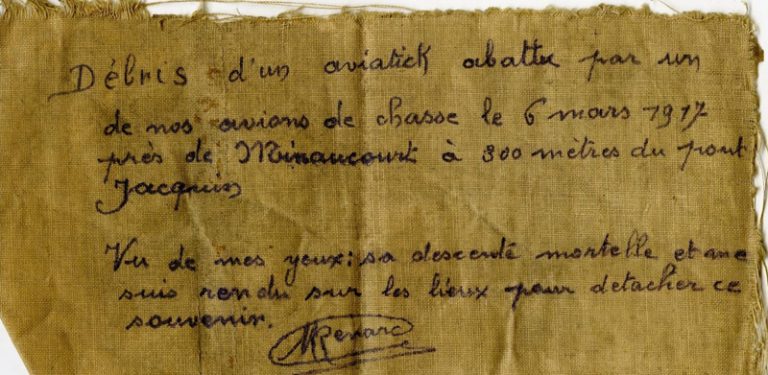 Débris d'un aviatick abattu par un
de nos avions de chasse le 6 mars 1917
près de Minaucourt à 800 mètres du pont
Jacquin
Vu de mes yeux: sa descente mortelle et me
suis rendu sur les lieux pour detacher ce
souvenir.
MRenard